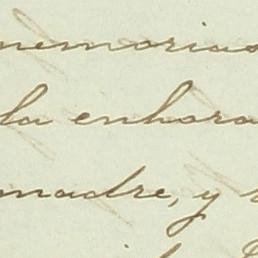 memorias
la enhora
madre, y